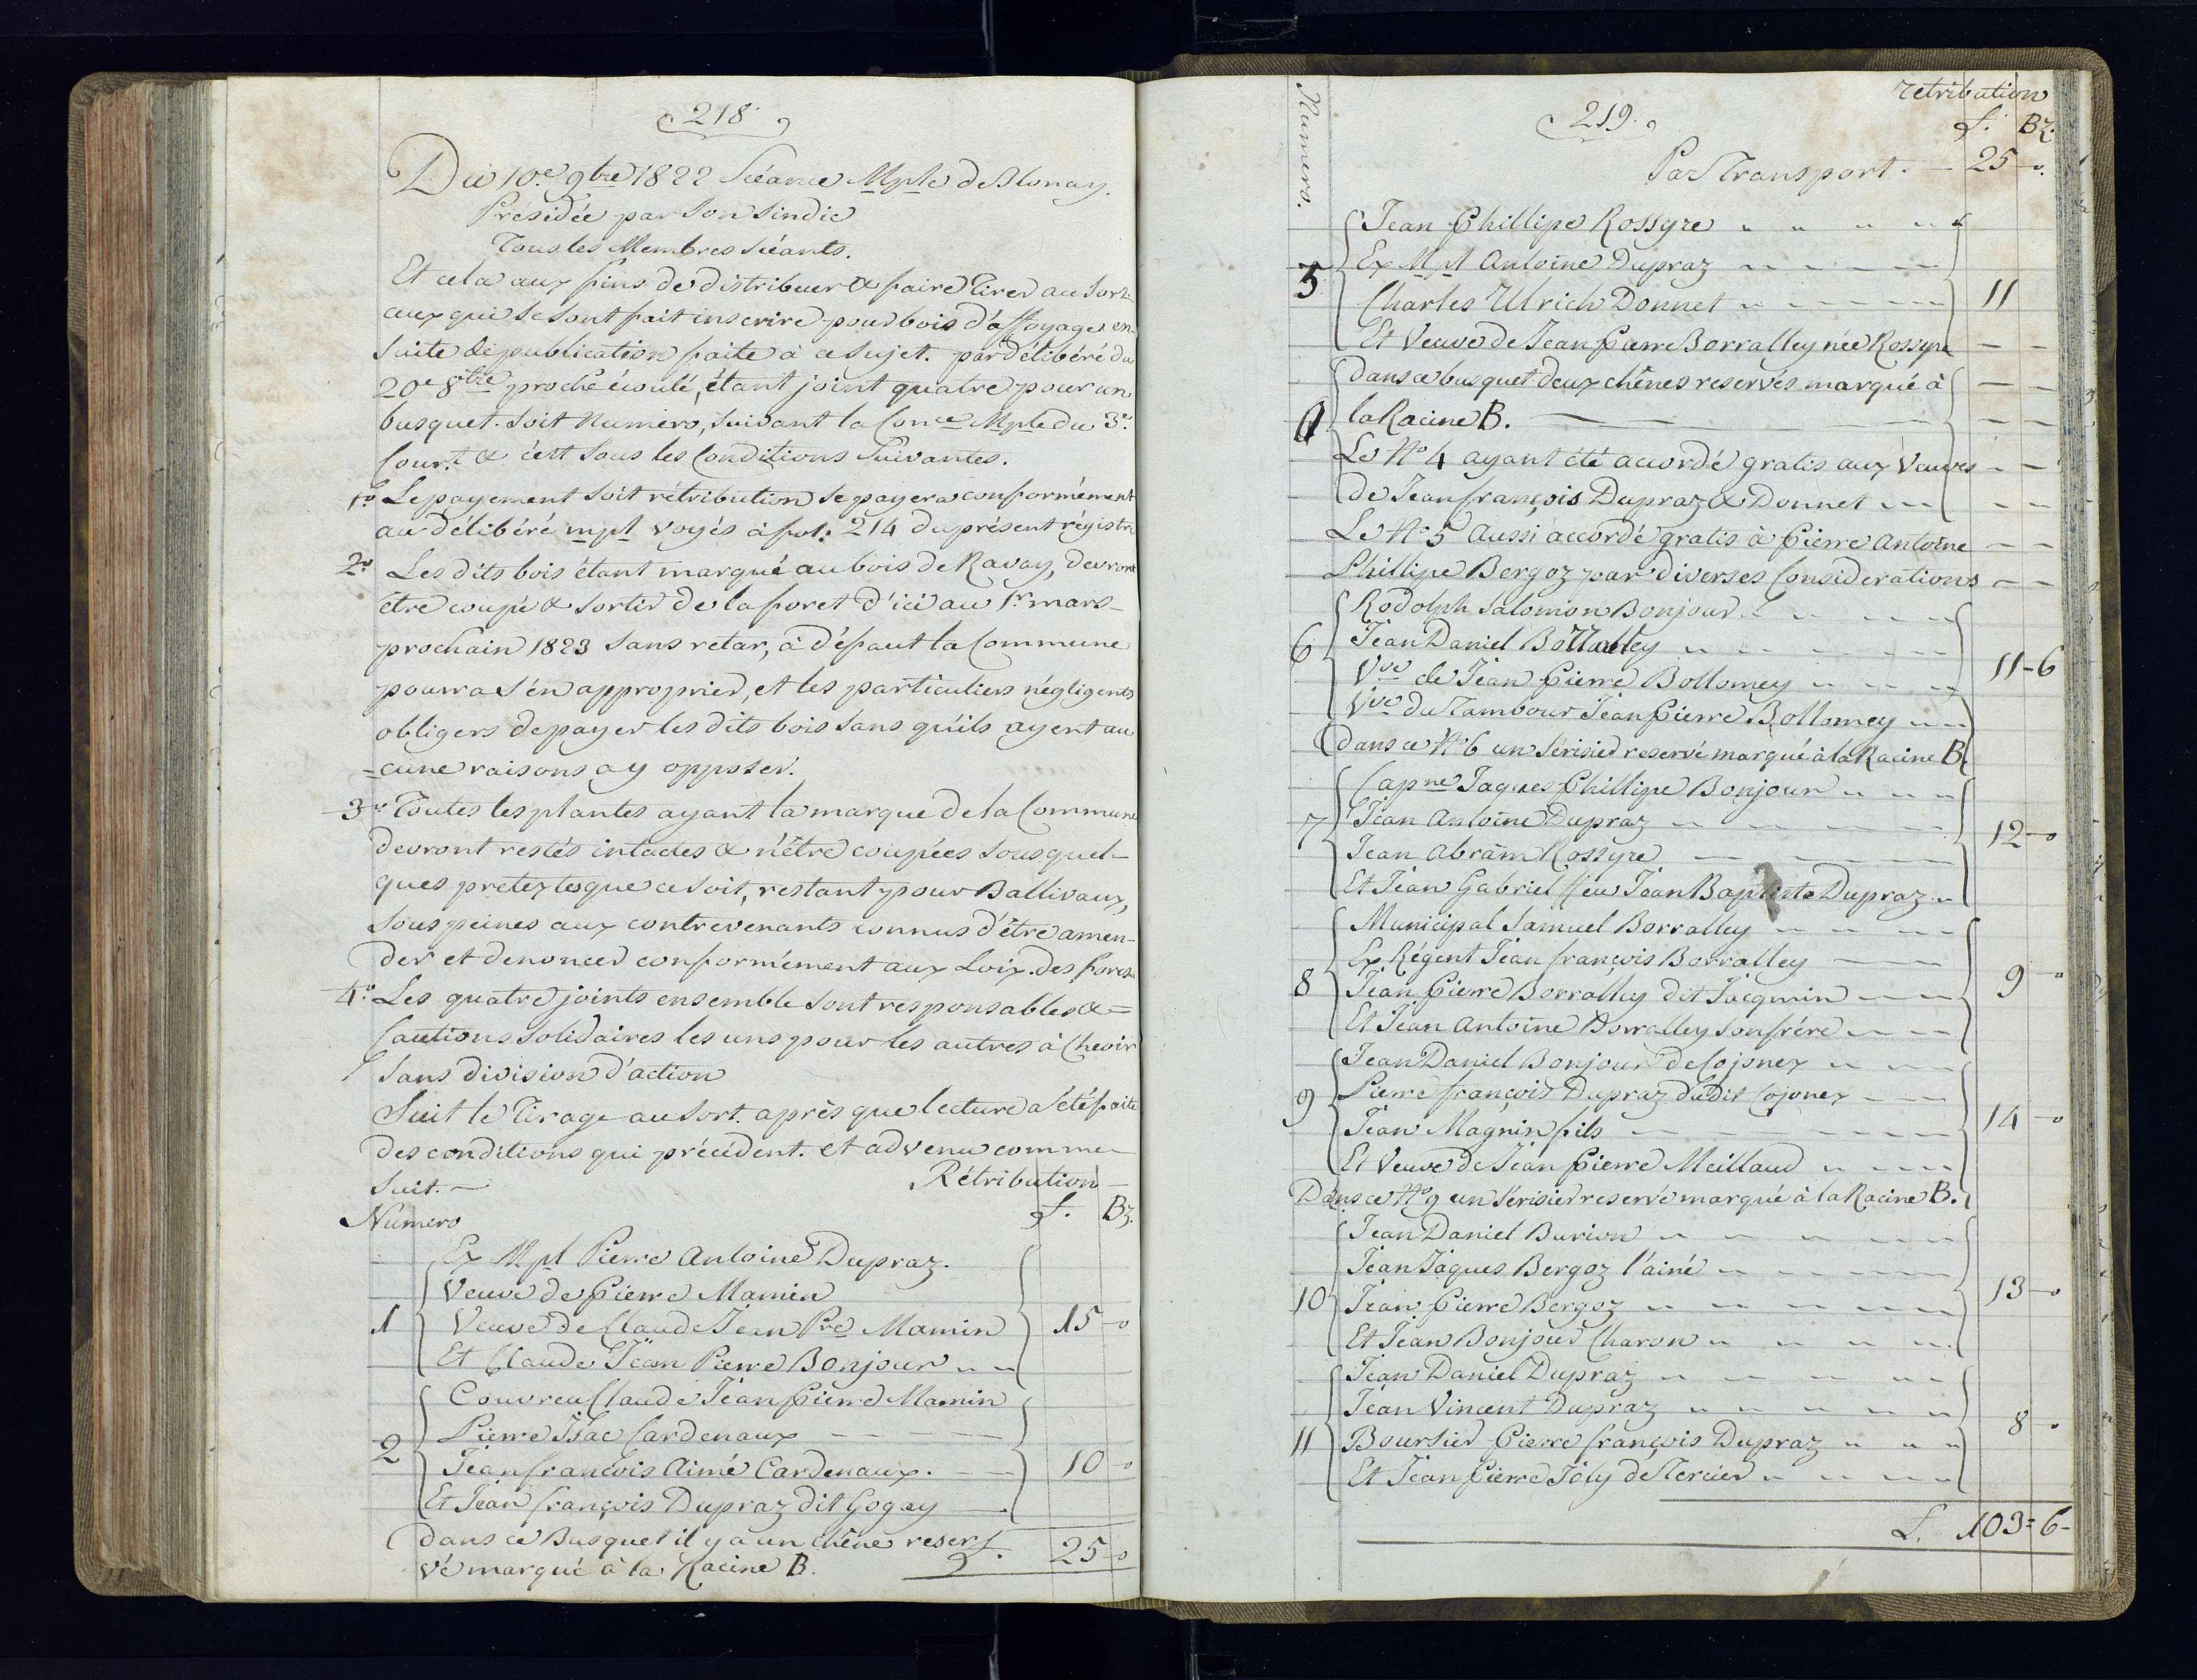 218.
Du 10.e 9bre 1822 Séance Mple de Blonay.
Présidée par Son Sindic
Tous les Membres Séants.
Et cela aux fins de distribuer & faire Tirer au Sort
ceux qui se sont fait inscrire pour bois d'affoyages en
suite de publication faite à ce sujet. par délibéré du
20e 8bre proche écoulé, étant joint quatre pour un
busquet. Soit Numéro, suivant la Conce Mple du 3e
Cour.t & c'est sous les Conditions Suivantes.
1.o Le payement soit rétribution se payera conformément
au délibéré mpl voyés à fol: 214 du présent régistre
2.o Les dits bois étant marqué au bois de Ravay, devront
être coupé & sortir de la foret d'ici au 1.r mars
prochain 1823 sans retar, à défaut la Commune
pourra s'en approprier, et les particuliers négligents
obligers de payer les dits bois sans qu'ils ayent au
=cune raisons a y opposer.
3.o Toutes les plantes ayant la marque de la Commune
devront restés intactes & n'être coupées sous quel-
ques pretextes que ce soit, restant pour Ballivaux,
sous peines aux contrevenants connus d'être amen-
der et denoncer conformément aux Loix des forets
4.o Les quatre joints ensemble sont responsables &=
Cautions solidaires les uns pour les autres à Choix
sans division d'action
Suit le Tirage au Sort. après que lecture a été faite
des conditions qui précédent. et advenu comme
suit. — Rétribution
Numero L. Bz.
Ex Mpl Pierre Antoine Dupraz.
Veuve de Pierre Mamin
1 Veuve de Claude Jean Pre Mamin 15 - o
Et Claude Jean Pierre Bonjour " "
Couvreu Claude Jean Pierre Mamin
Pierre Isac Cardenaux — —
2 Jean françois Aimé Cardenaux. — 10 - o
Et Jean françois Dupraz dit Gogey
dans ce Busquet il y a un chêne reser L. 25 - o
vé marqué à la Racine B.
219.
retribution
Numero. L. Bz.
Par Transport. — 25 - o.
Jean Phillipe Rossyre " " " "
Ex Mpl Antoine Dupraz — — — —
3 Charles Ulrich Donnet " — — — 11
Et Veuve de Jean Pierre Borralley née Rossyre — —
dans ce busquet deux chênes reservés marqué à — —
la Racine B. — — — —
Le No 4 ayant été accordé gratis aux Veuves — —
de Jean françois Dupraz & Donnet — — —
Le No 5 Aussi accordé gratis à Pierre Antoine — —
Phillipe Bergoz par diverses Considerations — —
Rodolph Salomon Bonjour " " " "
6 Jean Daniel — — — —
Vve de Jean Pierre Bottomey " " " 11 - 6
Vve du Tambour Jean Pierre Bottomey " "
dans ce No 6 un Serisier reservé marqué à la Racine B.
Capne Jaques Phillipe Bonjour " " "
7 Jean Antoine Dupraz — — — — 12 - o
Jean Abram Rossyre — — — —
Et Jean Gabriel ffeu Jean Baptiste Dupraz "
Municipal Samuel Borralley — — — —
Ex Régent Jean françois Borralley — —
8 Jean Pierre Borralley dit Jacquin — — 9 - o
Et Jean Antoine Borralley son frére — —
Jean Daniel Bonjour de Cojonex " — —
9 Pierre françois Dupraz dudit Cojonex — —
Jean Magnin fils — — — — 14 - o
Et Veuve de Jean Pierre Meillaud " — —
Dans ce No 9 un Serisier reservé marqué à la Racine B.
Jean Daniel Burion " " " "
Jean Jaques Bergoz l'ainé — — — —
10 Jean Pierre Bergoz " " " " 13 - o
Et Jean Bonjour Charon " " " "
Jean Daniel Dupraz " " " "
Jean Vincent Dupraz " " " "
11 Boursier Pierre françois Dupraz " " " 8 - o
Et Jean Pierre Joly de Tercier " " " "
L. 103 = 6 -